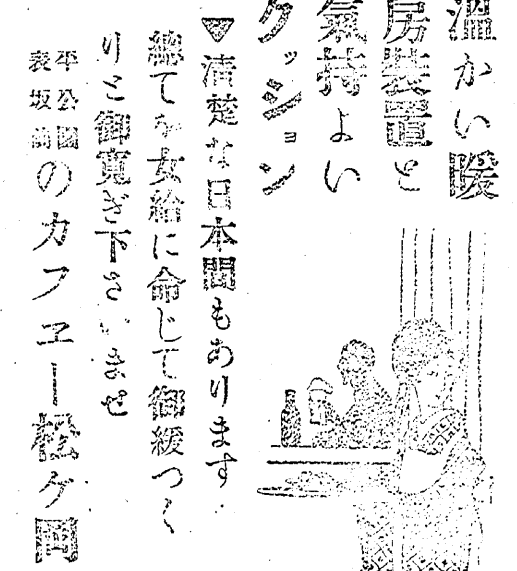 溫かい暖
房裝置と
氣持よい
クッション
▼淸楚な日本間もあります
總てを女給に命じて御緩つく
りと御寬ぎ下さいませ
平公園
表坂前
のカフヱー松ケ岡